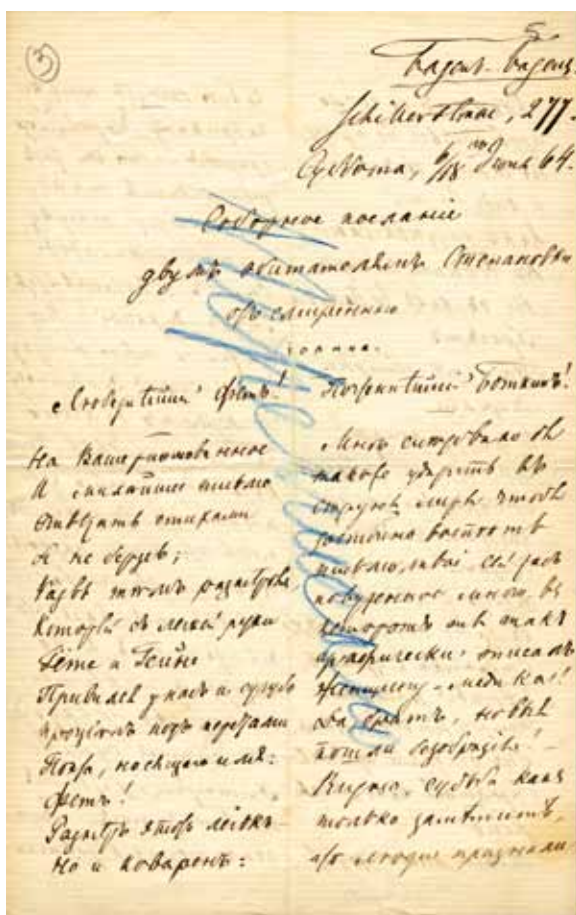 3
5
Баденъ-Баденъ.
Schillerstrasse, 277.
Суббота, 6/18 го Іюня 64.
Соборное посланіе
двумъ обитателямъ Степановки
отъ смиреннаго
.......
Любезнѣйшій Фетъ!
На Ваше риѳмованное
И милѣйшее письмо
Отвѣчать стихами
Я не берусь;
Развѣ тѣмъ размѣромъ,
Который съ легкой руки
Гёте и Гейне
Привился у насъ и сугубо
процвѣлъ подъ перстами
Поэта, носящаго имя:
Фетъ!
Размѣръ этотъ легокъ
Но и коваренъ:
Почтеннѣйшій Боткинъ!
Мнѣ слѣдовало бы
также ударить въ
струны лиры чтобы
достойно воспѣть
письмо твое, сей часъ
полученное мною, въ
которомъ ты такъ
гомерически описалъ
женщину-медика!
Да, братъ, новыя
пошли безобразія!
Видно, судьба какъ
только замѣтитъ,
что люди признали